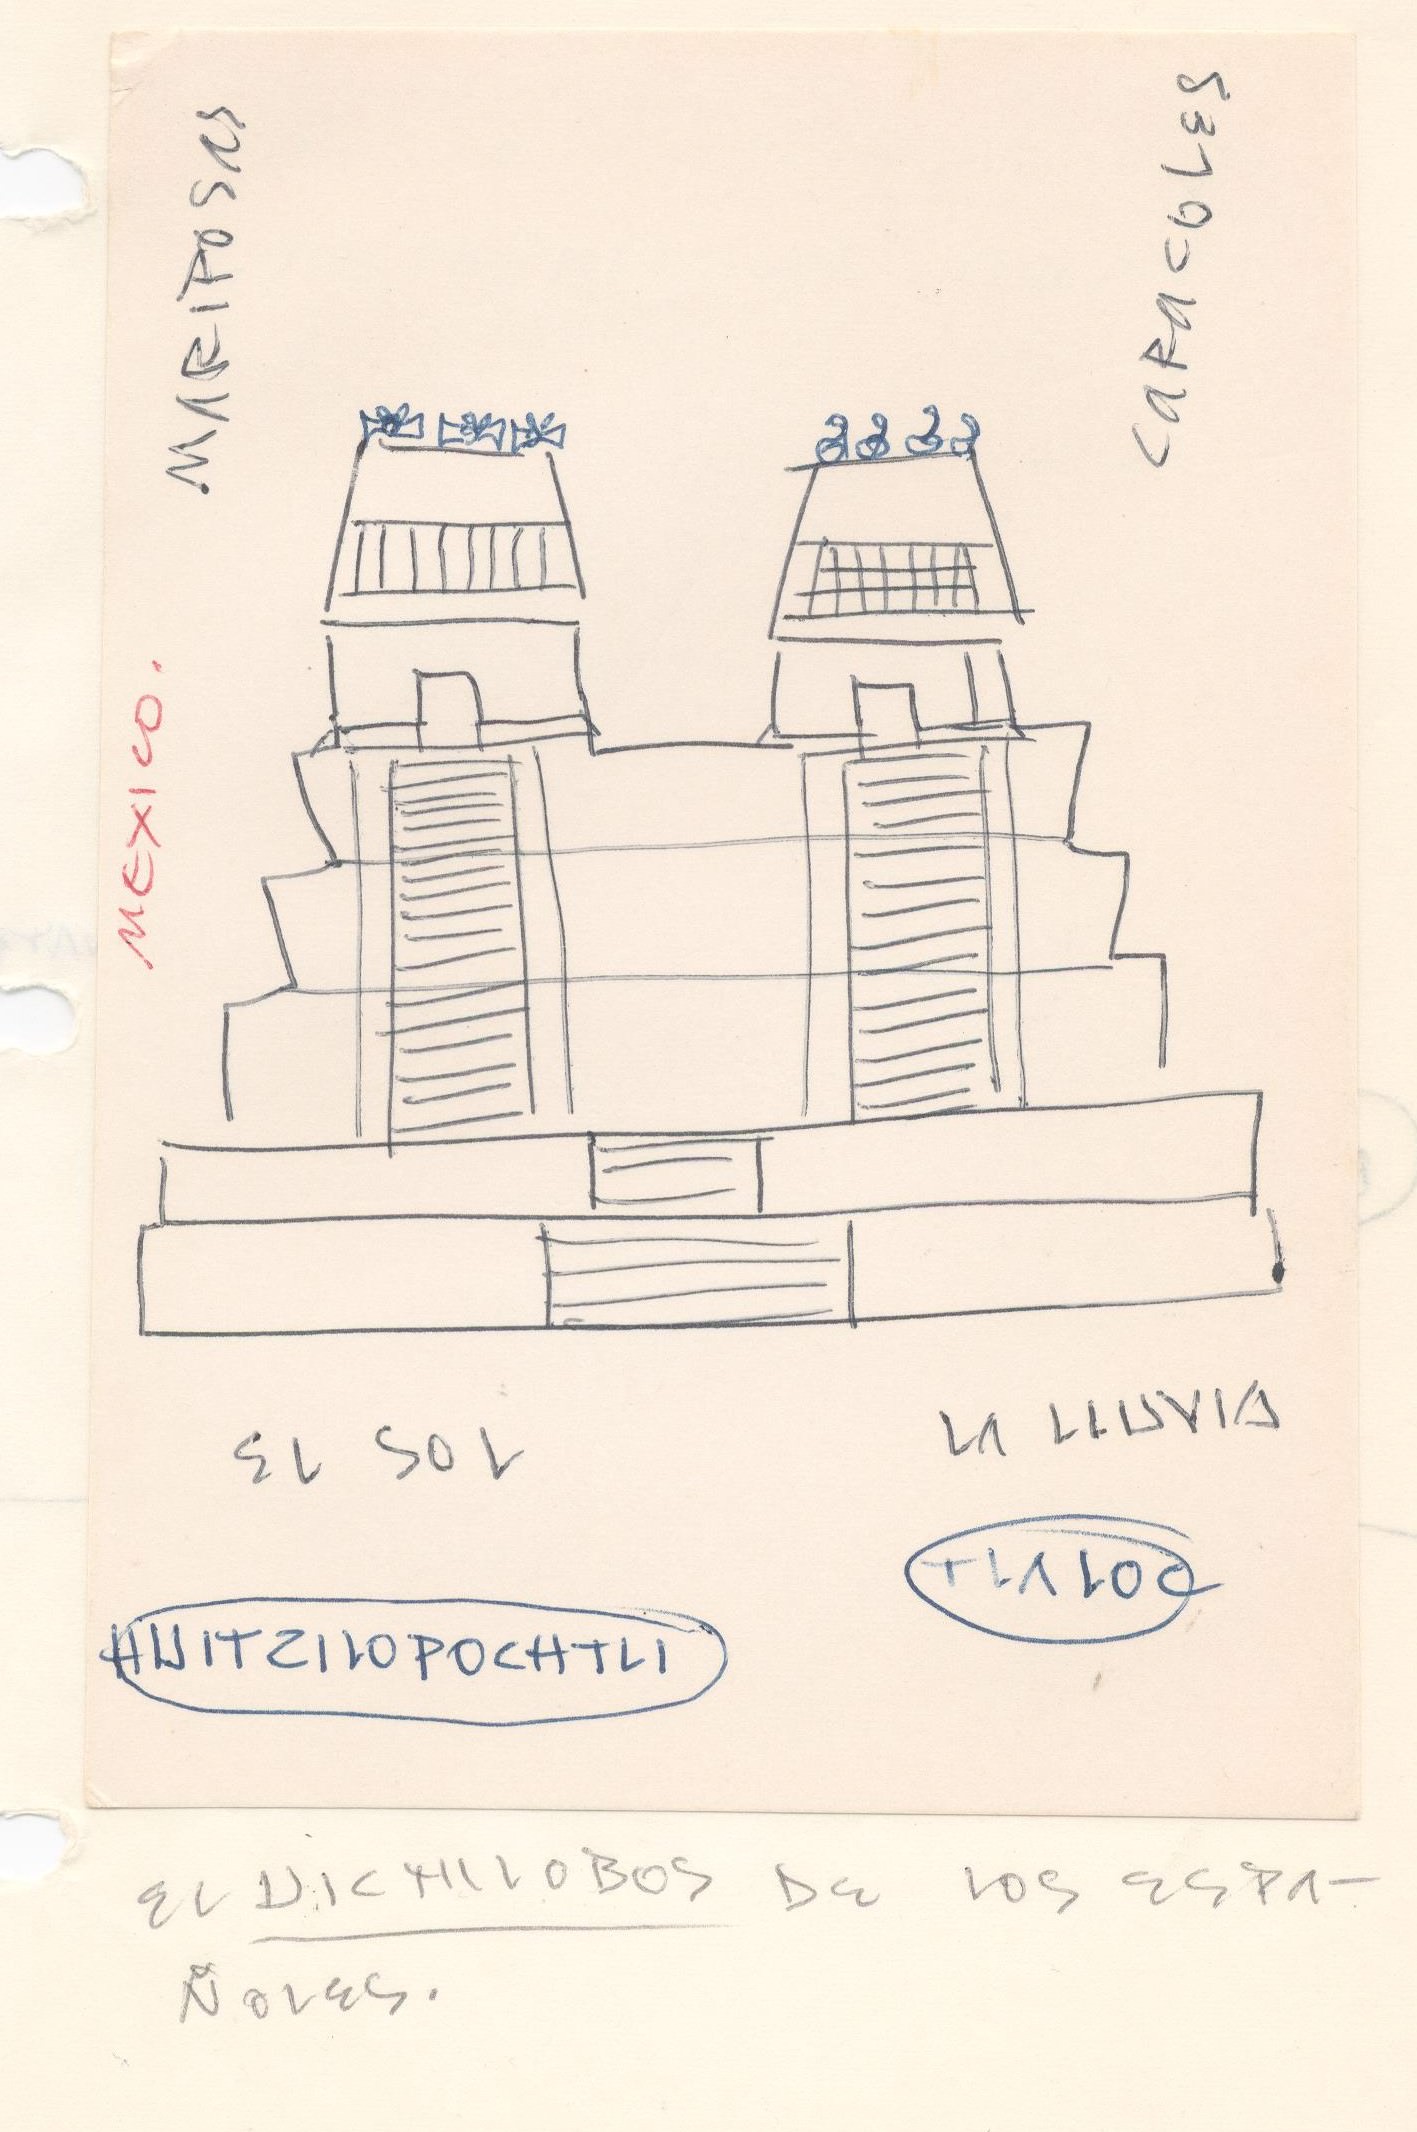 MARIPOSAS
CARACOLES
MEXICO.
EL SOL
LA LLUVIA
TLALOC
HUITZILOPOCHTLI
EL UICHILOBOS DE LOS ESPA-
ÑOLES.